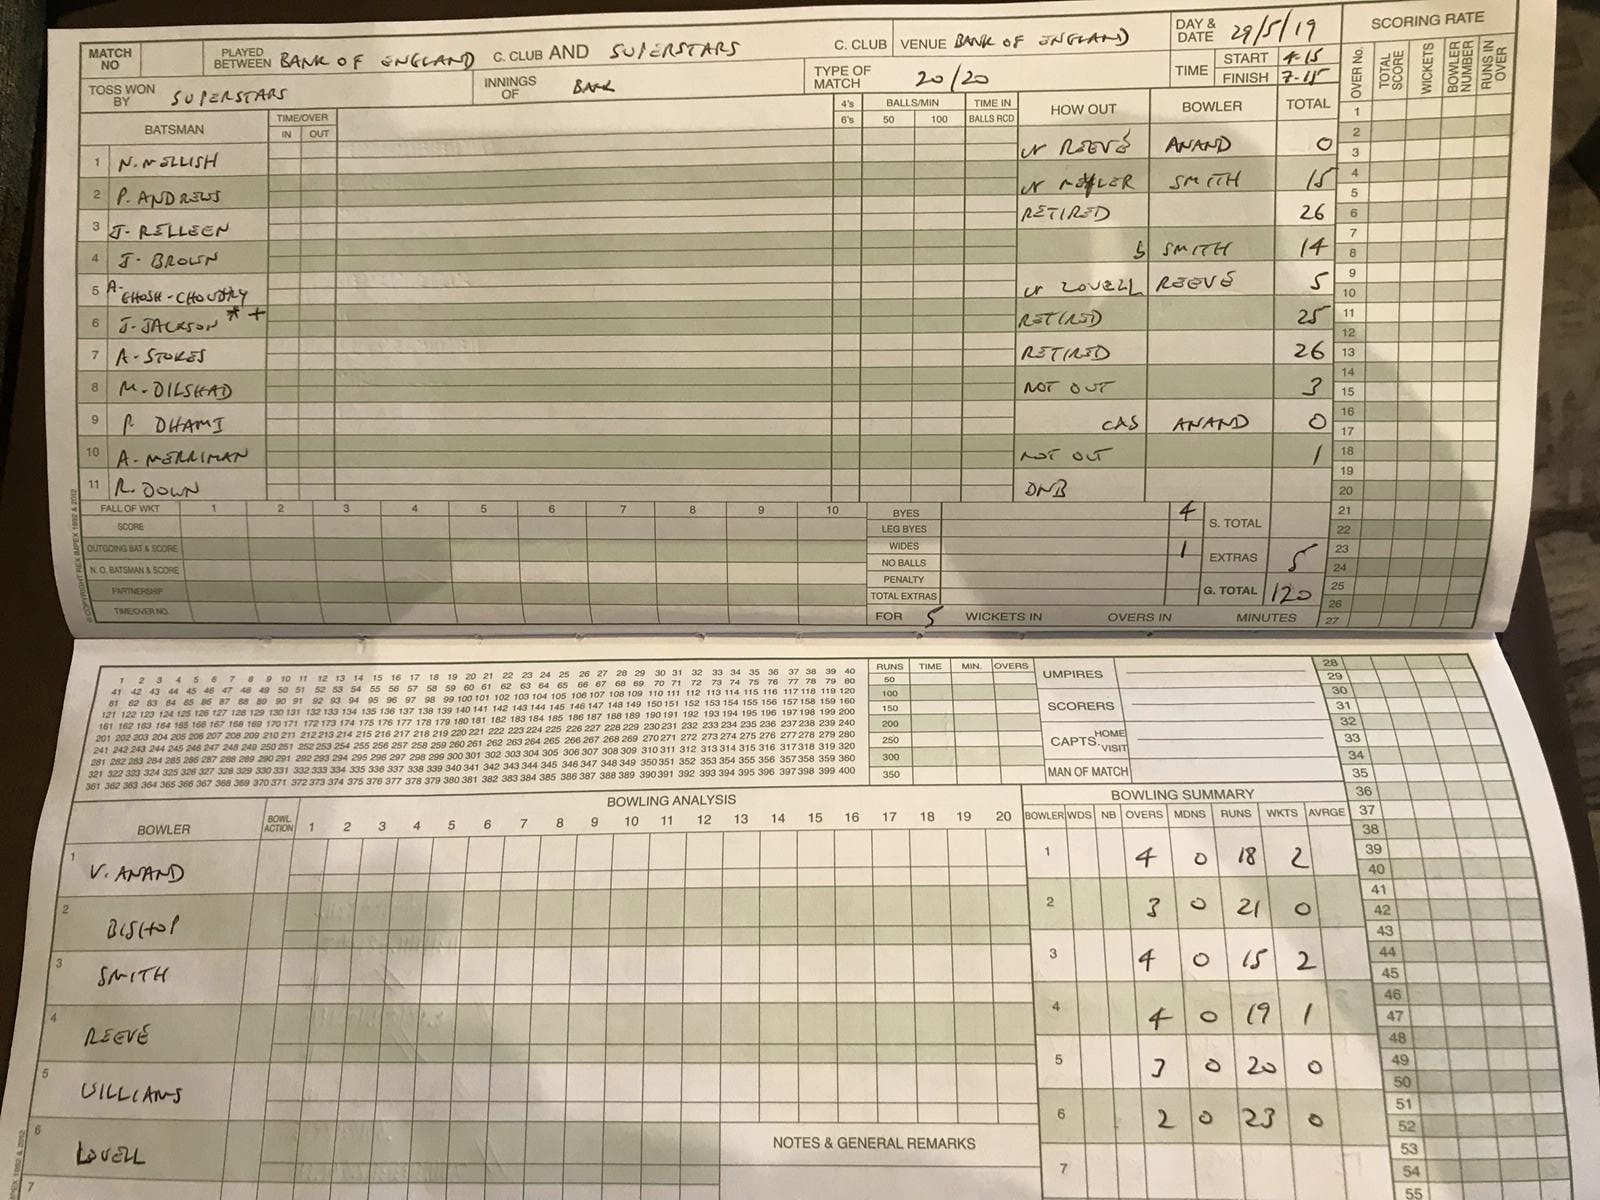 MATCH NO PLAYED BETWEEN BANK OF ENGLAND C. CLUB AND SUPERSTARS C. CLUB VENUE BANK OF ENGLAND DAY & DATE 29/5/19 SCORING RATE
TOSS WON BY SUPERSTARS INNINGS OF BANK TYPE OF MATCH 20/20 TIME START 4-15 FINISH 7-15
OVER No. TOTAL SCORE WICKETS BOWLER NUMBER RUNS IN OVER
BATSMAN TIME/OVER IN OUT 4's 6's BALLS/MIN 50 100 TIME IN BALLS RCD HOW OUT BOWLER TOTAL
1 N. MELLISH ct REEVE ANAND 0
2 P. ANDREWS ct SMITH 15
3 J. RELLEEN RETIRED 26
4 J. BROWN b SMITH 14
5 A. GHOSH-CHOUDHRY ct LOVELL REEVE 5
6 J. JACKSON * + RETIRED 25
7 A. STOKES RETIRED 26
8 M. DILSHAD NOT OUT 3
9 P. DHAMI C&B ANAND 0
10 A. MERRIMAN NOT OUT 1
11 R. DOWN DNB
FALL OF WKT 1 2 3 4 5 6 7 8 9 10
SCORE
OUTGOING BAT & SCORE
N. O. BATSMAN & SCORE
PARTNERSHIP
TIME/OVER NO.
BYES 4 S. TOTAL
LEG BYES
WIDES 1 EXTRAS 5
NO BALLS
PENALTY G. TOTAL 120
TOTAL EXTRAS
FOR 5 WICKETS IN OVERS IN MINUTES
© COPYRIGHT REX IMPEX 1992 & 2002
1 2 3 4 5 6 7 8 9 10 11 12 13 14 15 16 17 18 19 20 21 22 23 24 25 26 27
1 2 3 4 5 6 7 8 9 10 11 12 13 14 15 16 17 18 19 20 21 22 23 24 25 26 27 28 29 30 31 32 33 34 35 36 37 38 39 40
41 42 43 44 45 46 47 48 49 50 51 52 53 54 55 56 57 58 59 60 61 62 63 64 65 66 67 68 69 70 71 72 73 74 75 76 77 78 79 80
81 82 83 84 85 86 87 88 89 90 91 92 93 94 95 96 97 98 99 100 101 102 103 104 105 106 107 108 109 110 111 112 113 114 115 116 117 118 119 120
121 122 123 124 125 126 127 128 129 130 131 132 133 134 135 136 137 138 139 140 141 142 143 144 145 146 147 148 149 150 151 152 153 154 155 156 157 158 159 160
161 162 163 164 165 166 167 168 169 170 171 172 173 174 175 176 177 178 179 180 181 182 183 184 185 186 187 188 189 190 191 192 193 194 195 196 197 198 199 200
201 202 203 204 205 206 207 208 209 210 211 212 213 214 215 216 217 218 219 220 221 222 223 224 225 226 227 228 229 230 231 232 233 234 235 236 237 238 239 240
241 242 243 244 245 246 247 248 249 250 251 252 253 254 255 256 257 258 259 260 261 262 263 264 265 266 267 268 269 270 271 272 273 274 275 276 277 278 279 280
281 282 283 284 285 286 287 288 289 290 291 292 293 294 295 296 297 298 299 300 301 302 303 304 305 306 307 308 309 310 311 312 313 314 315 316 317 318 319 320
321 322 323 324 325 326 327 328 329 330 331 332 333 334 335 336 337 338 339 340 341 342 343 344 345 346 347 348 349 350 351 352 353 354 355 356 357 358 359 360
361 362 363 364 365 366 367 368 369 370 371 372 373 374 375 376 377 378 379 380 381 382 383 384 385 386 387 388 389 390 391 392 393 394 395 396 397 398 399 400
RUNS TIME MIN. OVERS
50
100
150
200
250
300
350
UMPIRES
SCORERS
CAPTS. HOME VISIT
MAN OF MATCH
BOWLING ANALYSIS BOWLING SUMMARY
BOWLER BOWL ACTION 1 2 3 4 5 6 7 8 9 10 11 12 13 14 15 16 17 18 19 20 BOWLER WDS NB OVERS MDNS RUNS WKTS AVRGE
1 V. ANAND 1 4 0 18 2
2 BISHOP 2 3 0 21 0
3 SMITH 3 4 0 15 2
4 REEVE 4 4 0 19 1
5 WILLIAMS 5 3 0 20 0
6 LOVELL 6 2 0 23 0
7 NOTES & GENERAL REMARKS 7
28 29 30 31 32 33 34 35 36 37 38 39 40 41 42 43 44 45 46 47 48 49 50 51 52 53 54 55